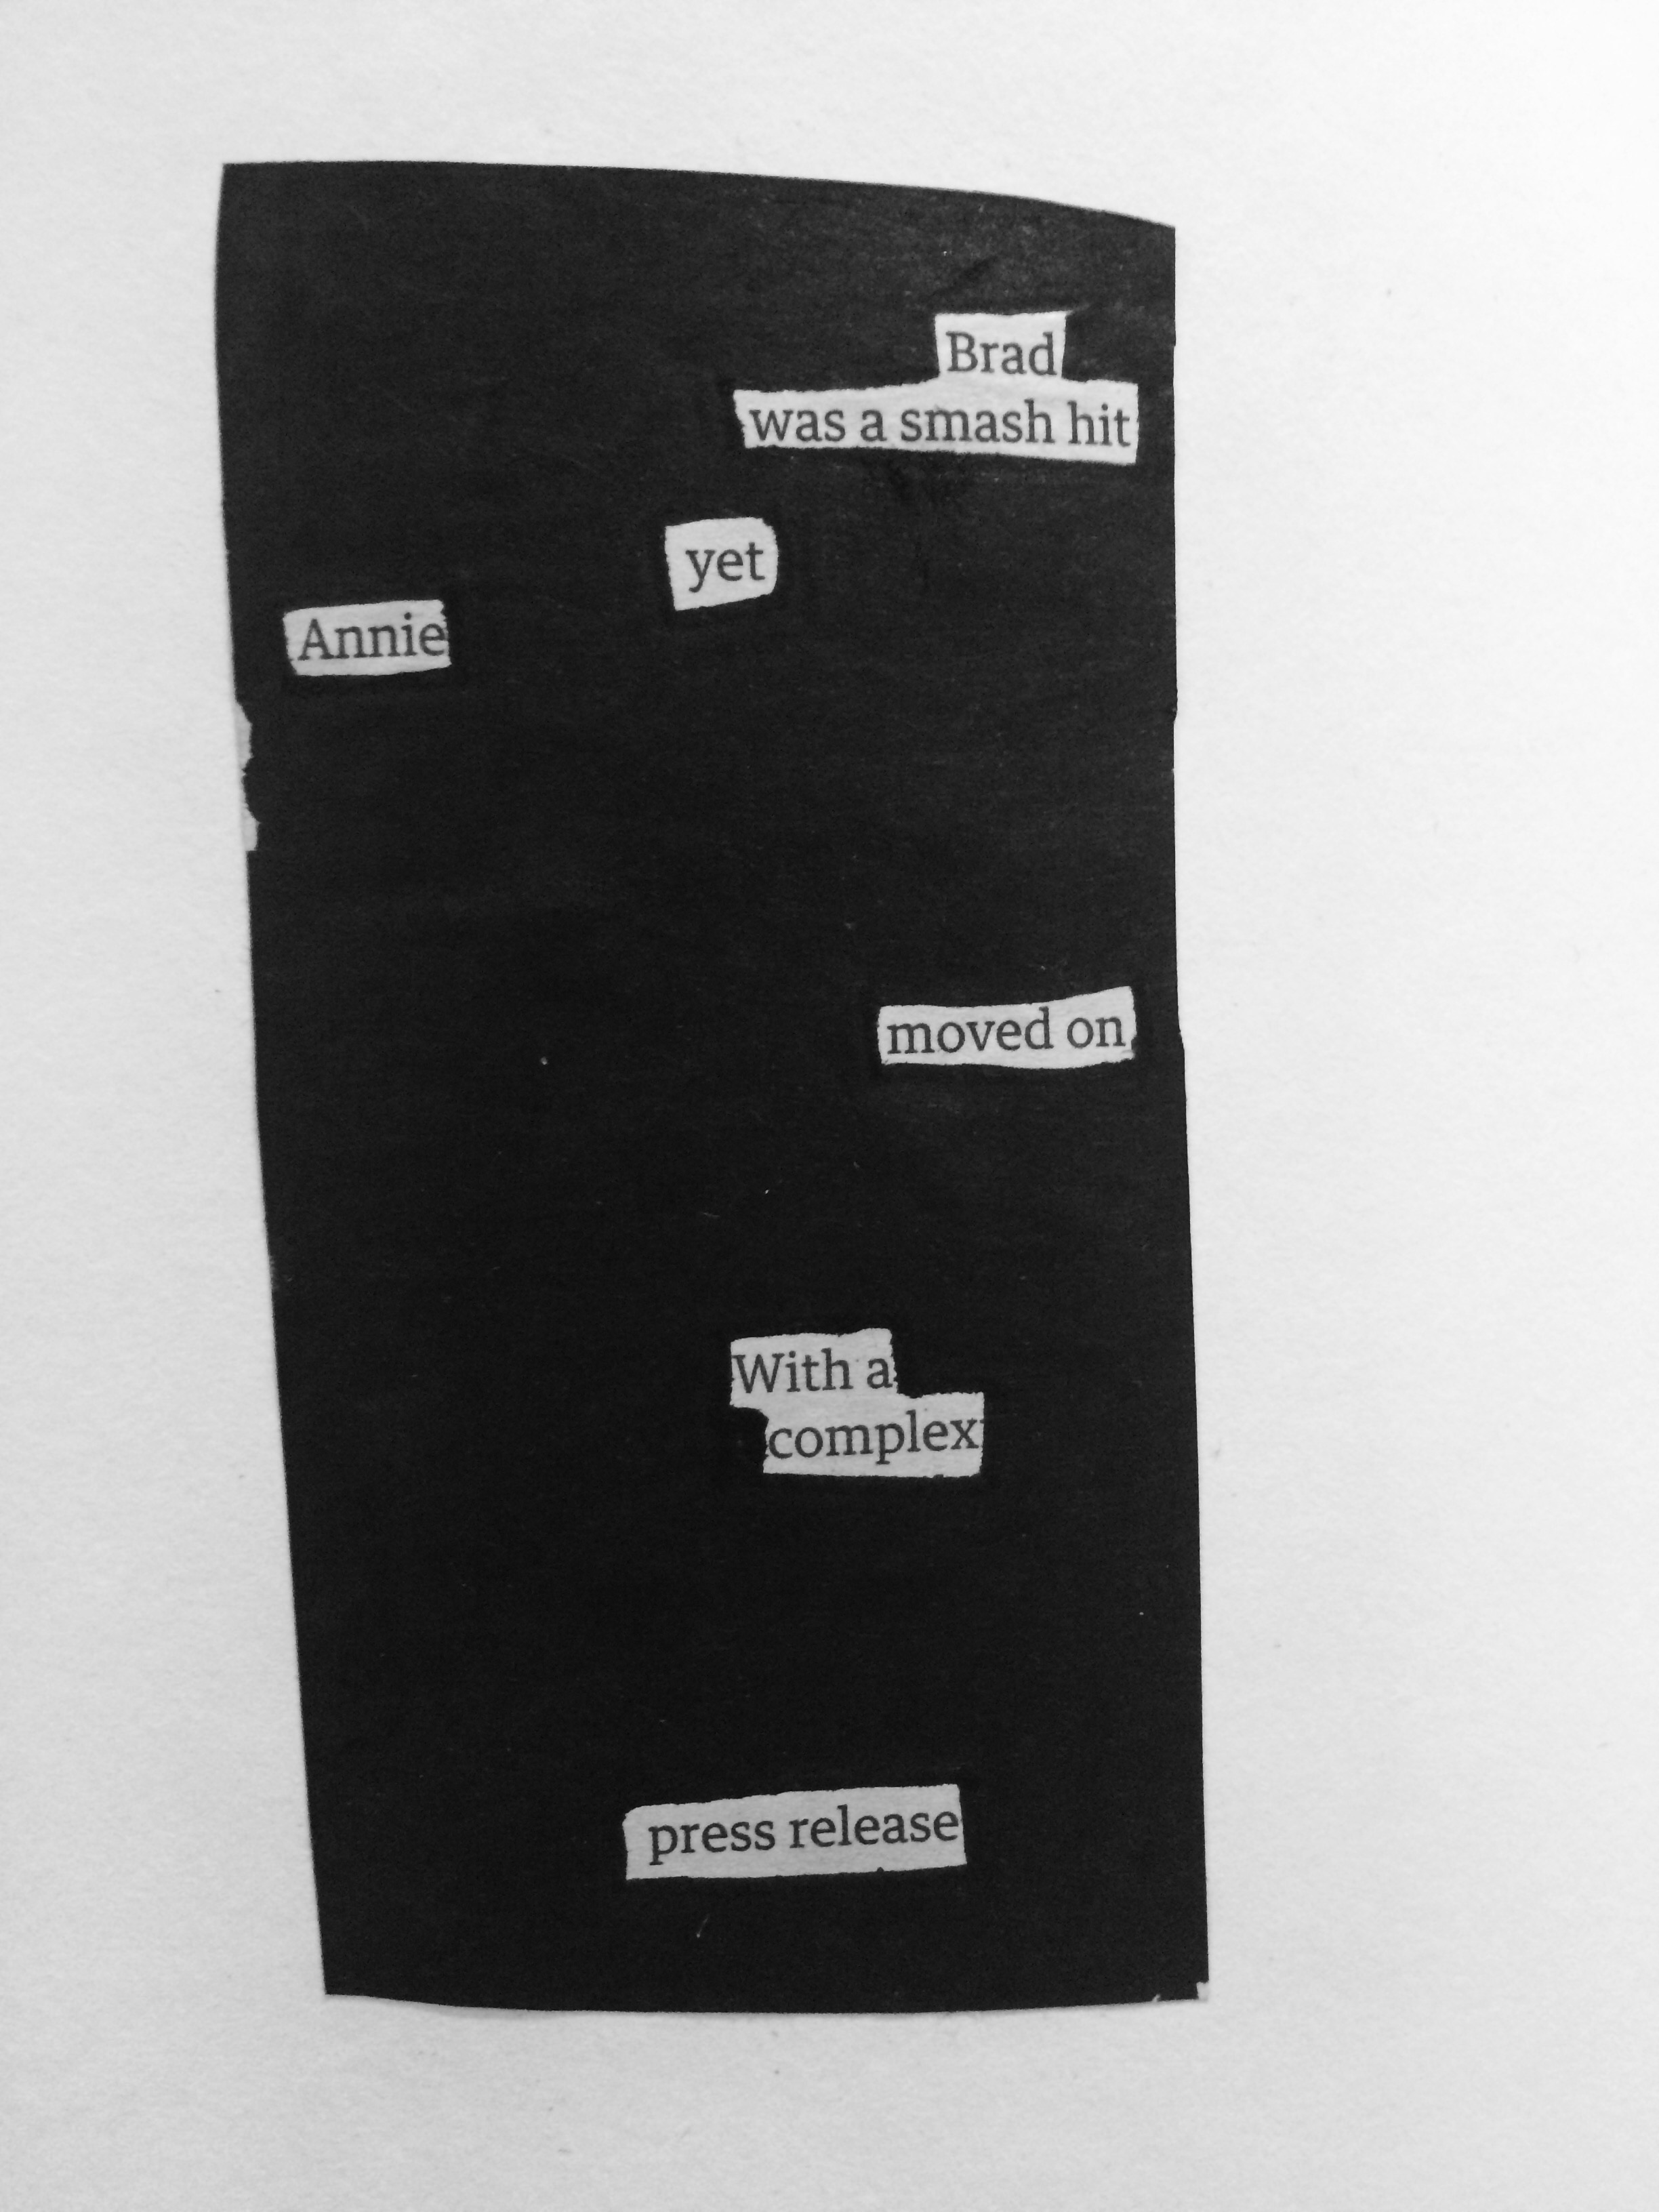 Brad
was a smash hit
yet
Annie
moved on
With a
complex
press release